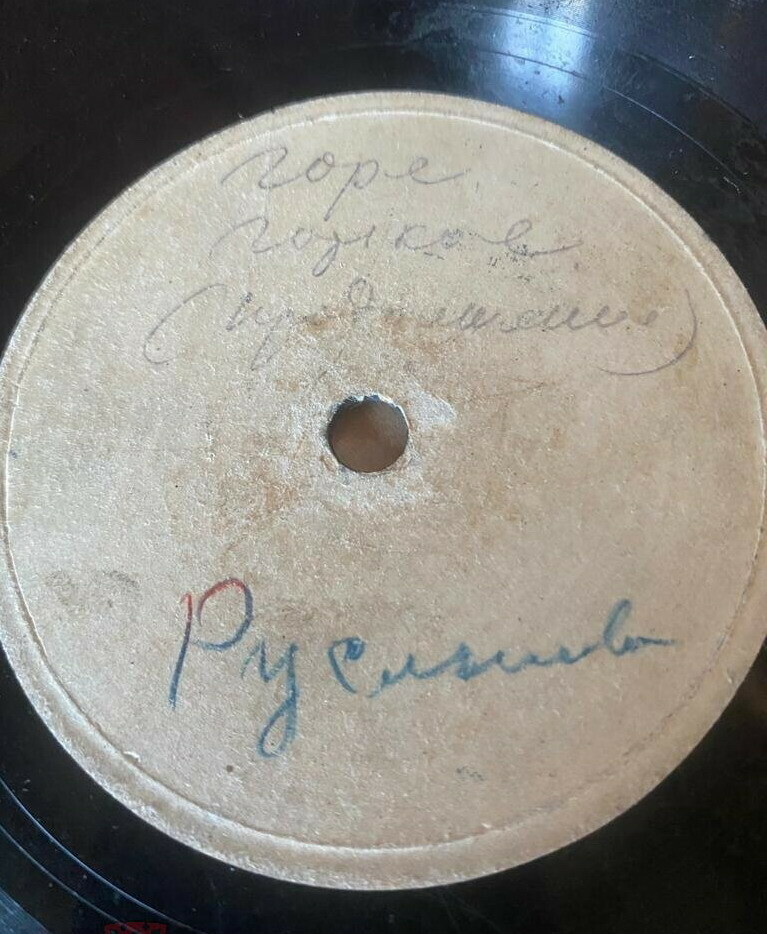 горе
горькое
(продолжение)
Русланова